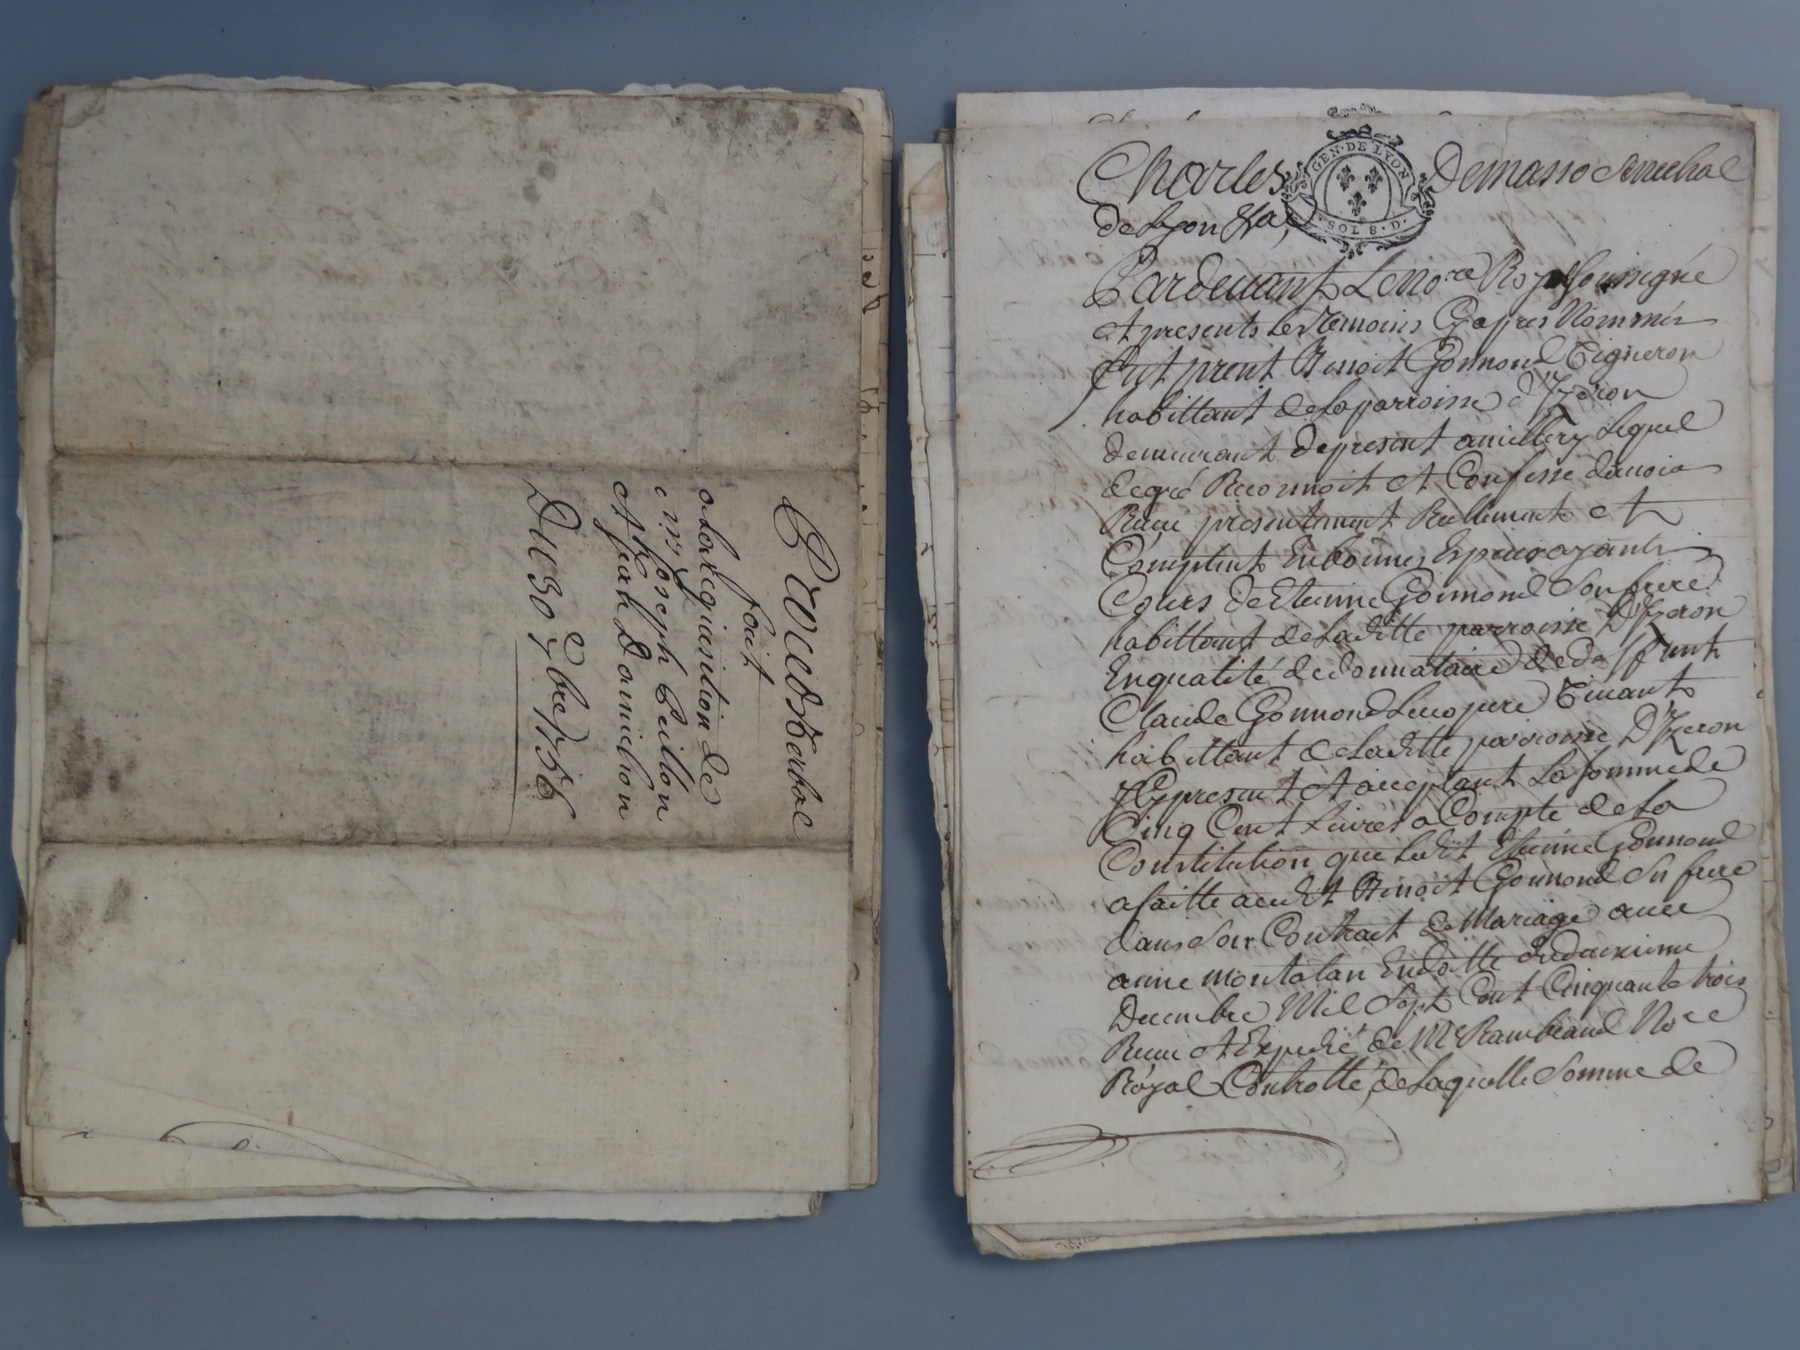 Proces Verbal
fait
a la requisition de
Mre Joseph Peillon
et jean Damichon
Du 30 7bre 1756
GEN·DE LYON
SOL 8·D·
Charles Demasso senechal
de Lyon &a,
Pardevant Le No.re Royal soussigné
et presents Les temoins Cy apres Nommés
fut pnt Benoit Gonnond Vigneron
habittant de la parroisse d'Yzeron
demeurant de present a millery Lequel
de gré Reconnoit et Confesse d'avoir
Receu presentement Reellement et
Comptent En bonnes Especes ayants
Cours de Etienne Gonnond Son frere
habittant de La ditte parroisse D'Yzeron
En qualité de donnataire de deffunt
Claude Gonnond Leur pere Vivant
habittant de La ditte parroisse D'Yzeron
Cy present et acceptant La somme de
Cinq Cent Livres a Compte de La
Constitution que Ledit Etienne Gonnond
a faitte audit Benoit Gonnond Sn frere
dans Son Contract de Mariage avec
anne montalan En datte du deuxieme
Decembre Mil Sept Cent Cinquante trois
Receu et Expedié de Me Rambaud No.re
Royal Controllé, de Laquelle Somme de